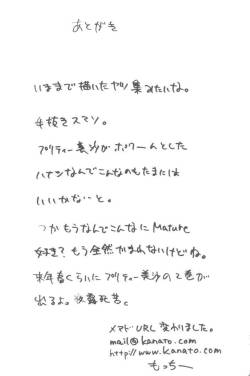 あとがき
いままで描いたヤツ集みたいな。
手抜きスマソ。
プリティー美沙がポワ〜ムとした
ハナシなんでこんなのもたまには
いいかな〜と。
つかもうなんでこんなにMature
好き?もう全然かまわないけどね。
来年春くらいにプリティー美沙の2巻が
出るよ。夜露死苦。
メアドURL変わりました。
mail@kanato.com
http://www.kanato.com
もっちー